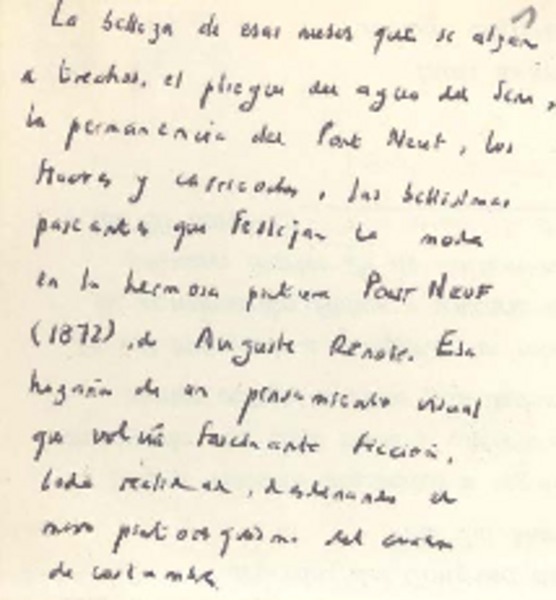 La belleza de esas nubes que se alzan
a trechos, el pliegue del agua del Sena,
la permanencia del Pont Neuf, los
y carricoches, las bellísimas
paseantes que festejan la moda
en la hermosa pintura PONT NEUF
(1872), de Auguste Renoir. Esa
hazaña de un pensamiento visual
que volvía fascinante ficción,
toda realidad, desdeñando el
mero pintoresquismo del cuadro
de costumbres